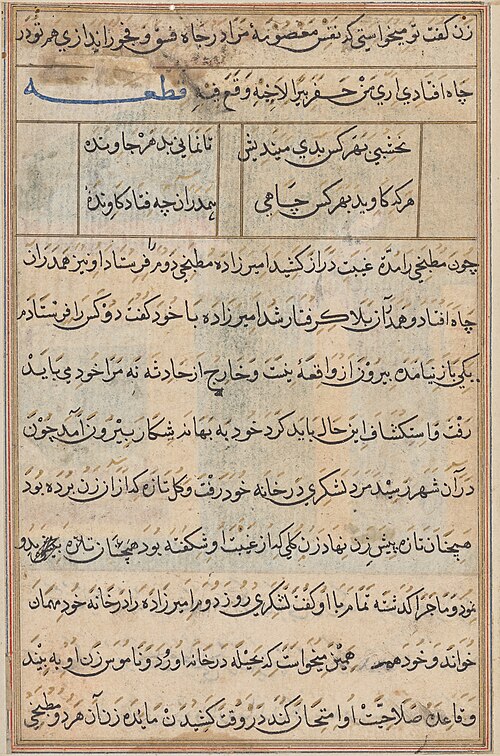 زن گفت تو میخواستی که نفس معصومهٔ مرا در چاه فسق و فجور اندازی هم تو در
چاه افتادی اری من حفر بیرا لاخیه وقع فیه قطعه
نخشبی بهر کس بدی میندیش تا نمانی بدهر جاوندهٔ
هر که کاوید بهر کس چاهی همدران چه فتاد کاوندهٔ
چون مطبخی را مدة غیبت دراز کشید امیرزاده مطبخی دوم را فرستاد او نیز همدران
چاه افتاد و همدان بلا گرفتار شد امیرزاده با خود گفت دو کس را فرستادم
یکی باز نیامده بیرون از واقعهٔ نیست و خارج از حادثه نه مرا خود می باید
رفت و استکشاف این حال باید کرد خود به بهانه شکار بیرون آمد چون
در آن شهر رسید مرد لشکری در خانه خود رفت و گل تازه که از آن زن برده بود
همچنان تازه پیش زن نهاد زن گلی که از غیبت او شکفته بود همچنان تازه بدو
نمود و ماجرا گذشته تمام با او گفت لشکری روز دوم امیرزاده را در خانه خود مهمان
خواند و خود همین میخواست که بحیله در خانه او رود و ناموس زن او به بیند
و قاعده صلاحیت او امتحان کند در وقت کشیدن مایده زن آن هر دو مطبخی